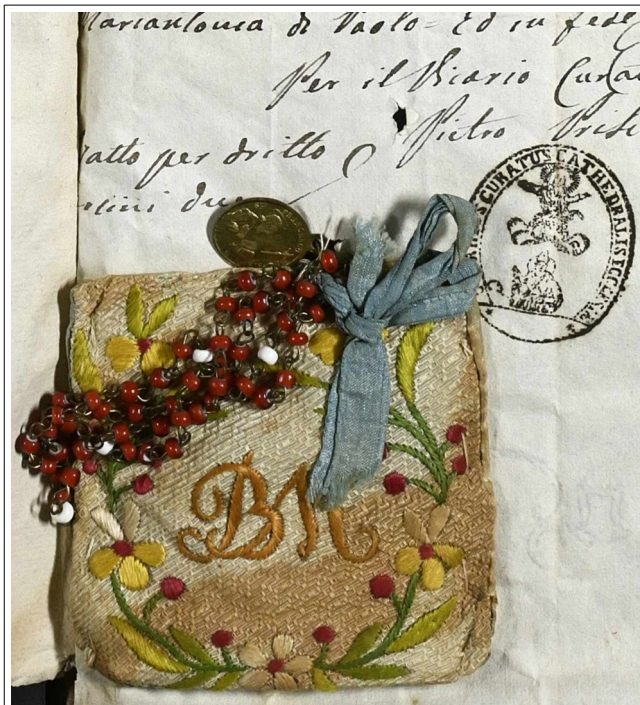 Mariantonia di Paolo = Ed in fede
Per il Vicario Curato
Pietro
fatto per dritto
due
CURATUS CATHEDRALIS ECC
BN